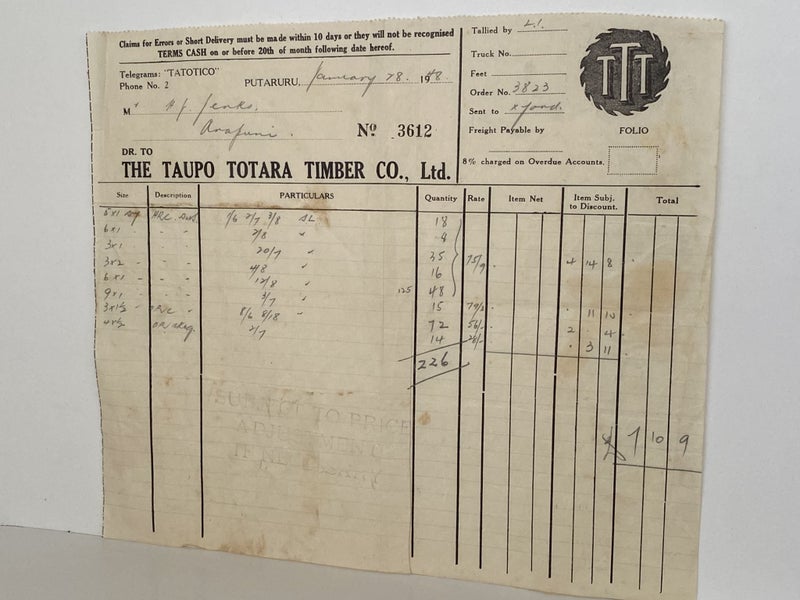 Claims for Errors or Short Delivery must be made within 10 days or they will not be recognised
TERMS CASH on or before 20th of month following date hereof.
Telegrams: "TATOTICO"
Phone No. 2
PUTARURU, January 28. 1948
M
Arapuni.
No 3612
DR. TO
THE TAUPO TOTARA TIMBER CO., Ltd.
Tallied by
Truck No.
Feet
Order No. 3823
Sent to
Freight Payable by
8% charged on Overdue Accounts.
TTT
FOLIO
Size Description PARTICULARS Quantity Rate Item Net Item Subj. to Discount. Total
6x1 1/6 2/7 3/8 18
6x1 - - 2/8 " 8
3x1 - - 20/7 " 35 75/9 4 14 8
3x2 - - 4/8 " 16
6x1 - - 12/8 " 125 48
9x1 - - 3/7 " 15 11 10
8/6 8/18 " 72 56/- 2 . 4
2/7 14 3 11
226
£ 7 10 9
SUBJECT TO PRICE
ADJUSTMENT